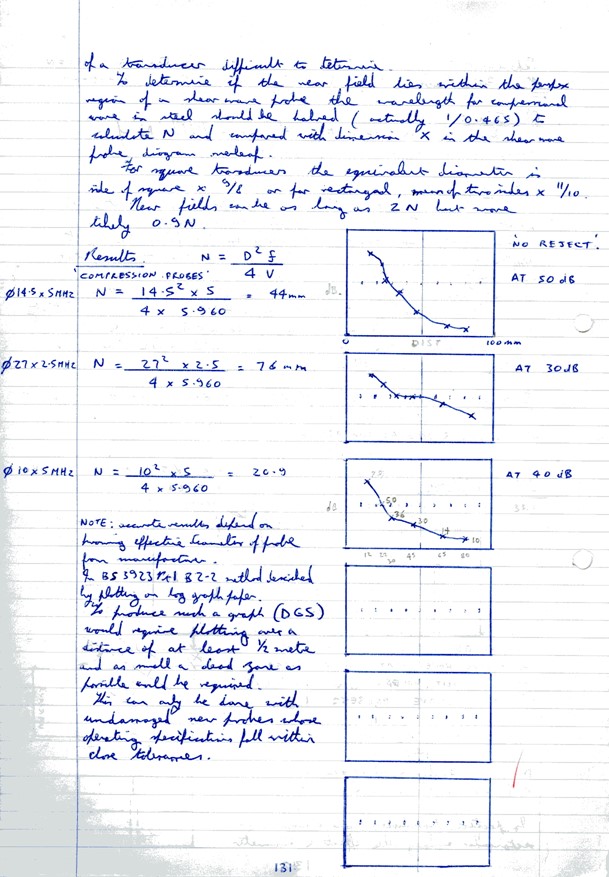 of a transducer difficult to determine.
To determine if the near field lies within the perspex
region of a shear wave probe the wavelength for compressional
wave in steel should be halved ( actually 1/0.465) to
calculate N and compared with dimension X in the shear wave
probe diagram overleaf.
For square transducers the equivalent diameter is
side of square x 9/8 or for rectangular, mean of two sides x 11/10.
Near fields can be as long as 2N but more
likely 0.9N.
Results N = D² f
4 V
'COMPRESSION PROBES'
'NO REJECT'.
AT 50 dB
ø14.5 x 5MHz N = 14.5² x 5 = 44mm
4 x 5.960
dB.
0 DIST 100mm
ø27 x 2.5MHz N = 27² x 2.5 = 76 mm
4 x 5.960
AT 30dB
ø10 x 5MHz N = 10² x 5 = 20.9
4 x 5.960
AT 40 dB
dB
50
36
30
14
10
12 25 30 45 65 80
NOTE: accurate results depend on
knowing effective diameter of probe
from manufacture.
In BS 3923 Pt1 B2-2 method described
by plotting on log graph paper.
To produce such a graph (DGS)
would require plotting over a
distance of at least ½ metre
and as small a dead zone as
possible would be required.
This can only be done with
undamaged new probes whose
operating specifications fall within
close tolerances.
131